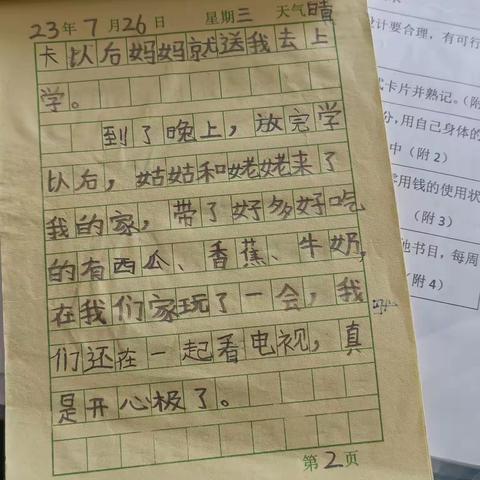 23年7月26日 星期三 天气晴
卡以后妈妈就送我去上
学。
到了晚上，放完学
以后，姑姑和姥姥来了
我的家，带了好多好吃
的有西瓜、香蕉、牛奶，
在我们家玩了一会，我
们还在一起看电视，真
是开心极了。
第2页
计要合理，有可行
卡片并熟记。（附
分，用自己身体的
中（附 2）
用钱的使用状
（附 3）
书目，每周
（附 4）